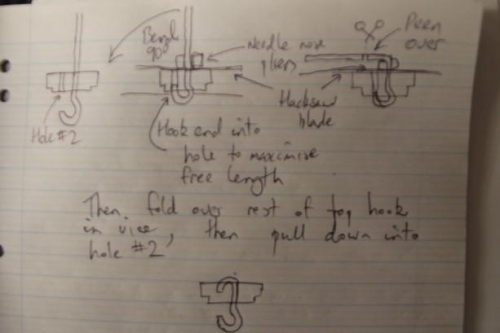 Bend
90°
Needle nose
pliers
Peen
over
Hole #2
Hacksaw
blade
Hook end into
hole to maximise
free length
Then fold over rest of top hook
in vice, then pull down into
hole #2